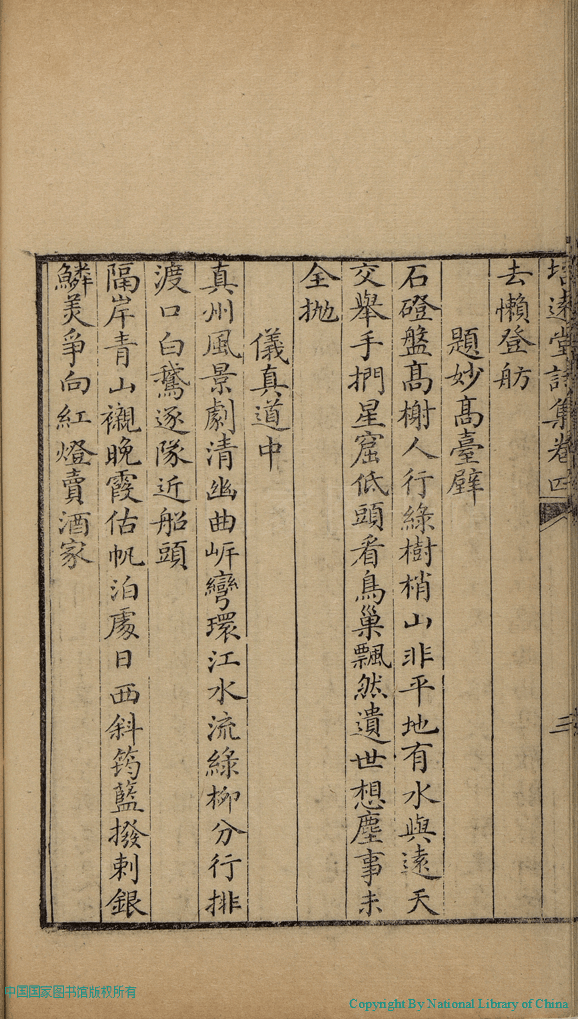 培遠堂詩集卷四
三
去懶登舫
題妙髙臺壁
石磴盤髙榭人行綠樹梢山非平地有水與遠天
交舉手捫星窟低頭看鳥巢飄然遺世想塵事未
全抛
儀真道中
真州風景劇清幽曲岍彎環江水流綠柳分行排
渡口白鵞逐隊近船頭
隔岸青山襯晚霞估帆泊處日西斜筠籃撥剌銀
鱗美爭向紅燈賣酒家
中国国家图书馆版权所有
Copyright By National Library of China